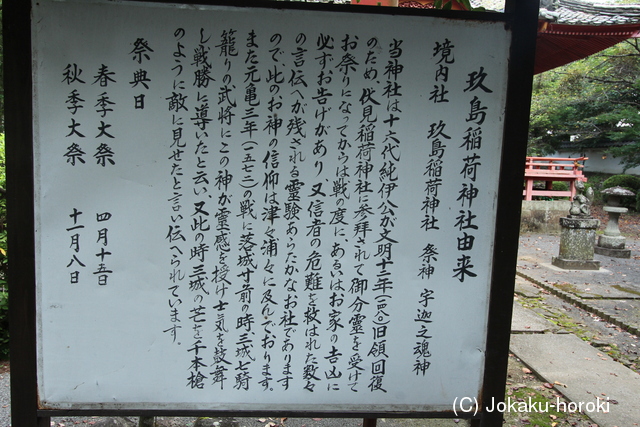 玖島稲荷神社由来
境内社 玖島稲荷神社 祭神 宇迦之魂神
当神社は十六代純伊公が文明十二年(一四八〇)旧領回復
のため、伏見稲荷神社に参拜されて御分靈を受けて
お祭りになってからは戦の度に、あるいはお家の吉凶に
必ずお告げがあり、又信者の危難を救はれた数々
の言伝へが残される靈験あらたかなお社であります
ので、此のお神の信仰は津々浦々に及んでおります。
また元亀三年(一五七二)の戦に落城寸前の時三城七騎
籠りの武将にこの神が靈感を授け士気を鼓舞
し戦勝に導いたと云い、又此の時三城の芒を千本槍
のように敵に見せたと言い伝へられています。
祭典日
春季大祭 四月十五日
秋季大祭 十一月八日
(C) Jokaku-horoki